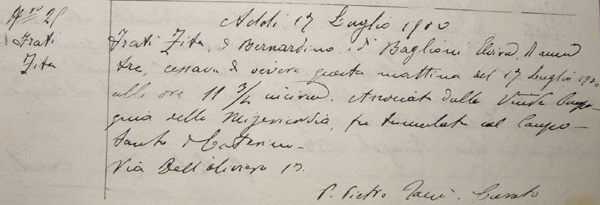 N.ro 25
Frati
Zita
Addì 17 Luglio 1900
Frati Zita, di Bernardino e di Bagliani Elvira, d'anni
tre, cessava di vivere questa mattina del 17 Luglio 1900
alle ore 11 3/4 circa. Associata dalla Vnda Compa-
gnia della Misericordia, fu tumulata al Campo-
santo di Caterino.
Via Dell'oliviera 17.
P. Pietro Curato